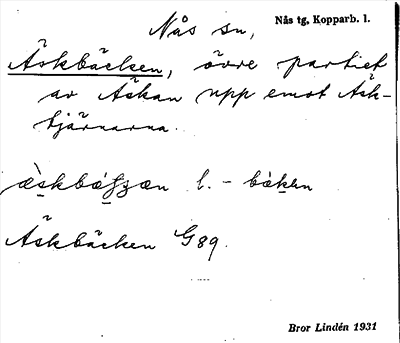 Nås sn, Nås tg, Kopparb. l.
Äskbäcken, övre partiet
av Äskan upp emot Äsk-
tjärnarna.
l. - bàkɘn
Äskbäcken G89.
Bror Lindén 1931